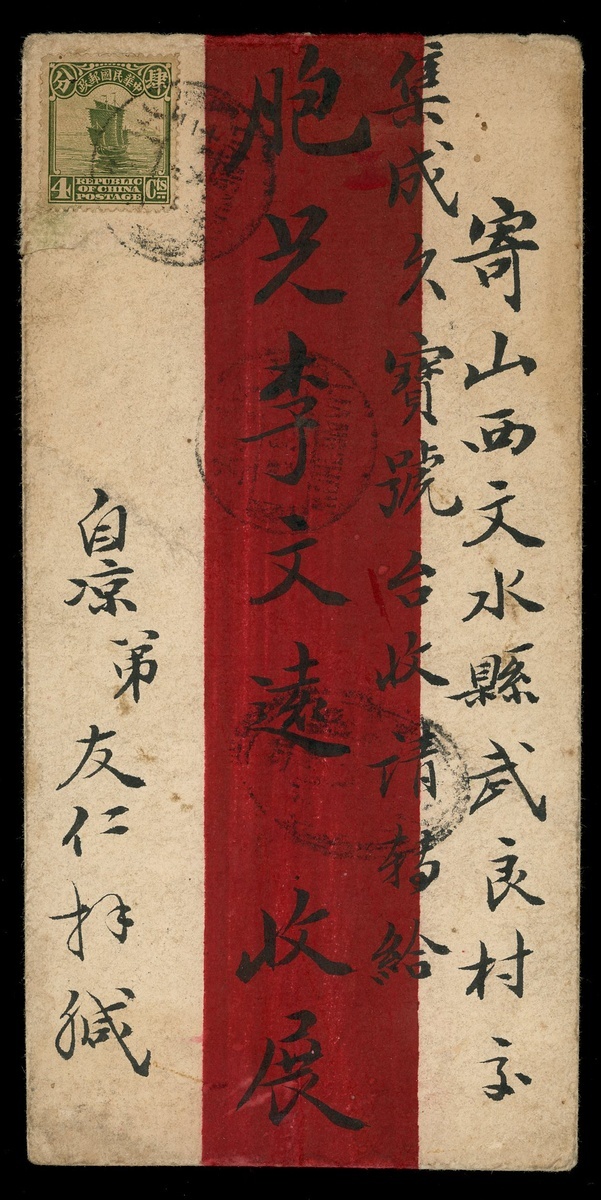 寄山西文水縣武良村交
集成久寶號台收请转給
胞兄李文遠收展
自凉第友仁拜緘
分 政郵國民華中 肆
4 REPUBLIC OF CHINA POSTAGE Cts